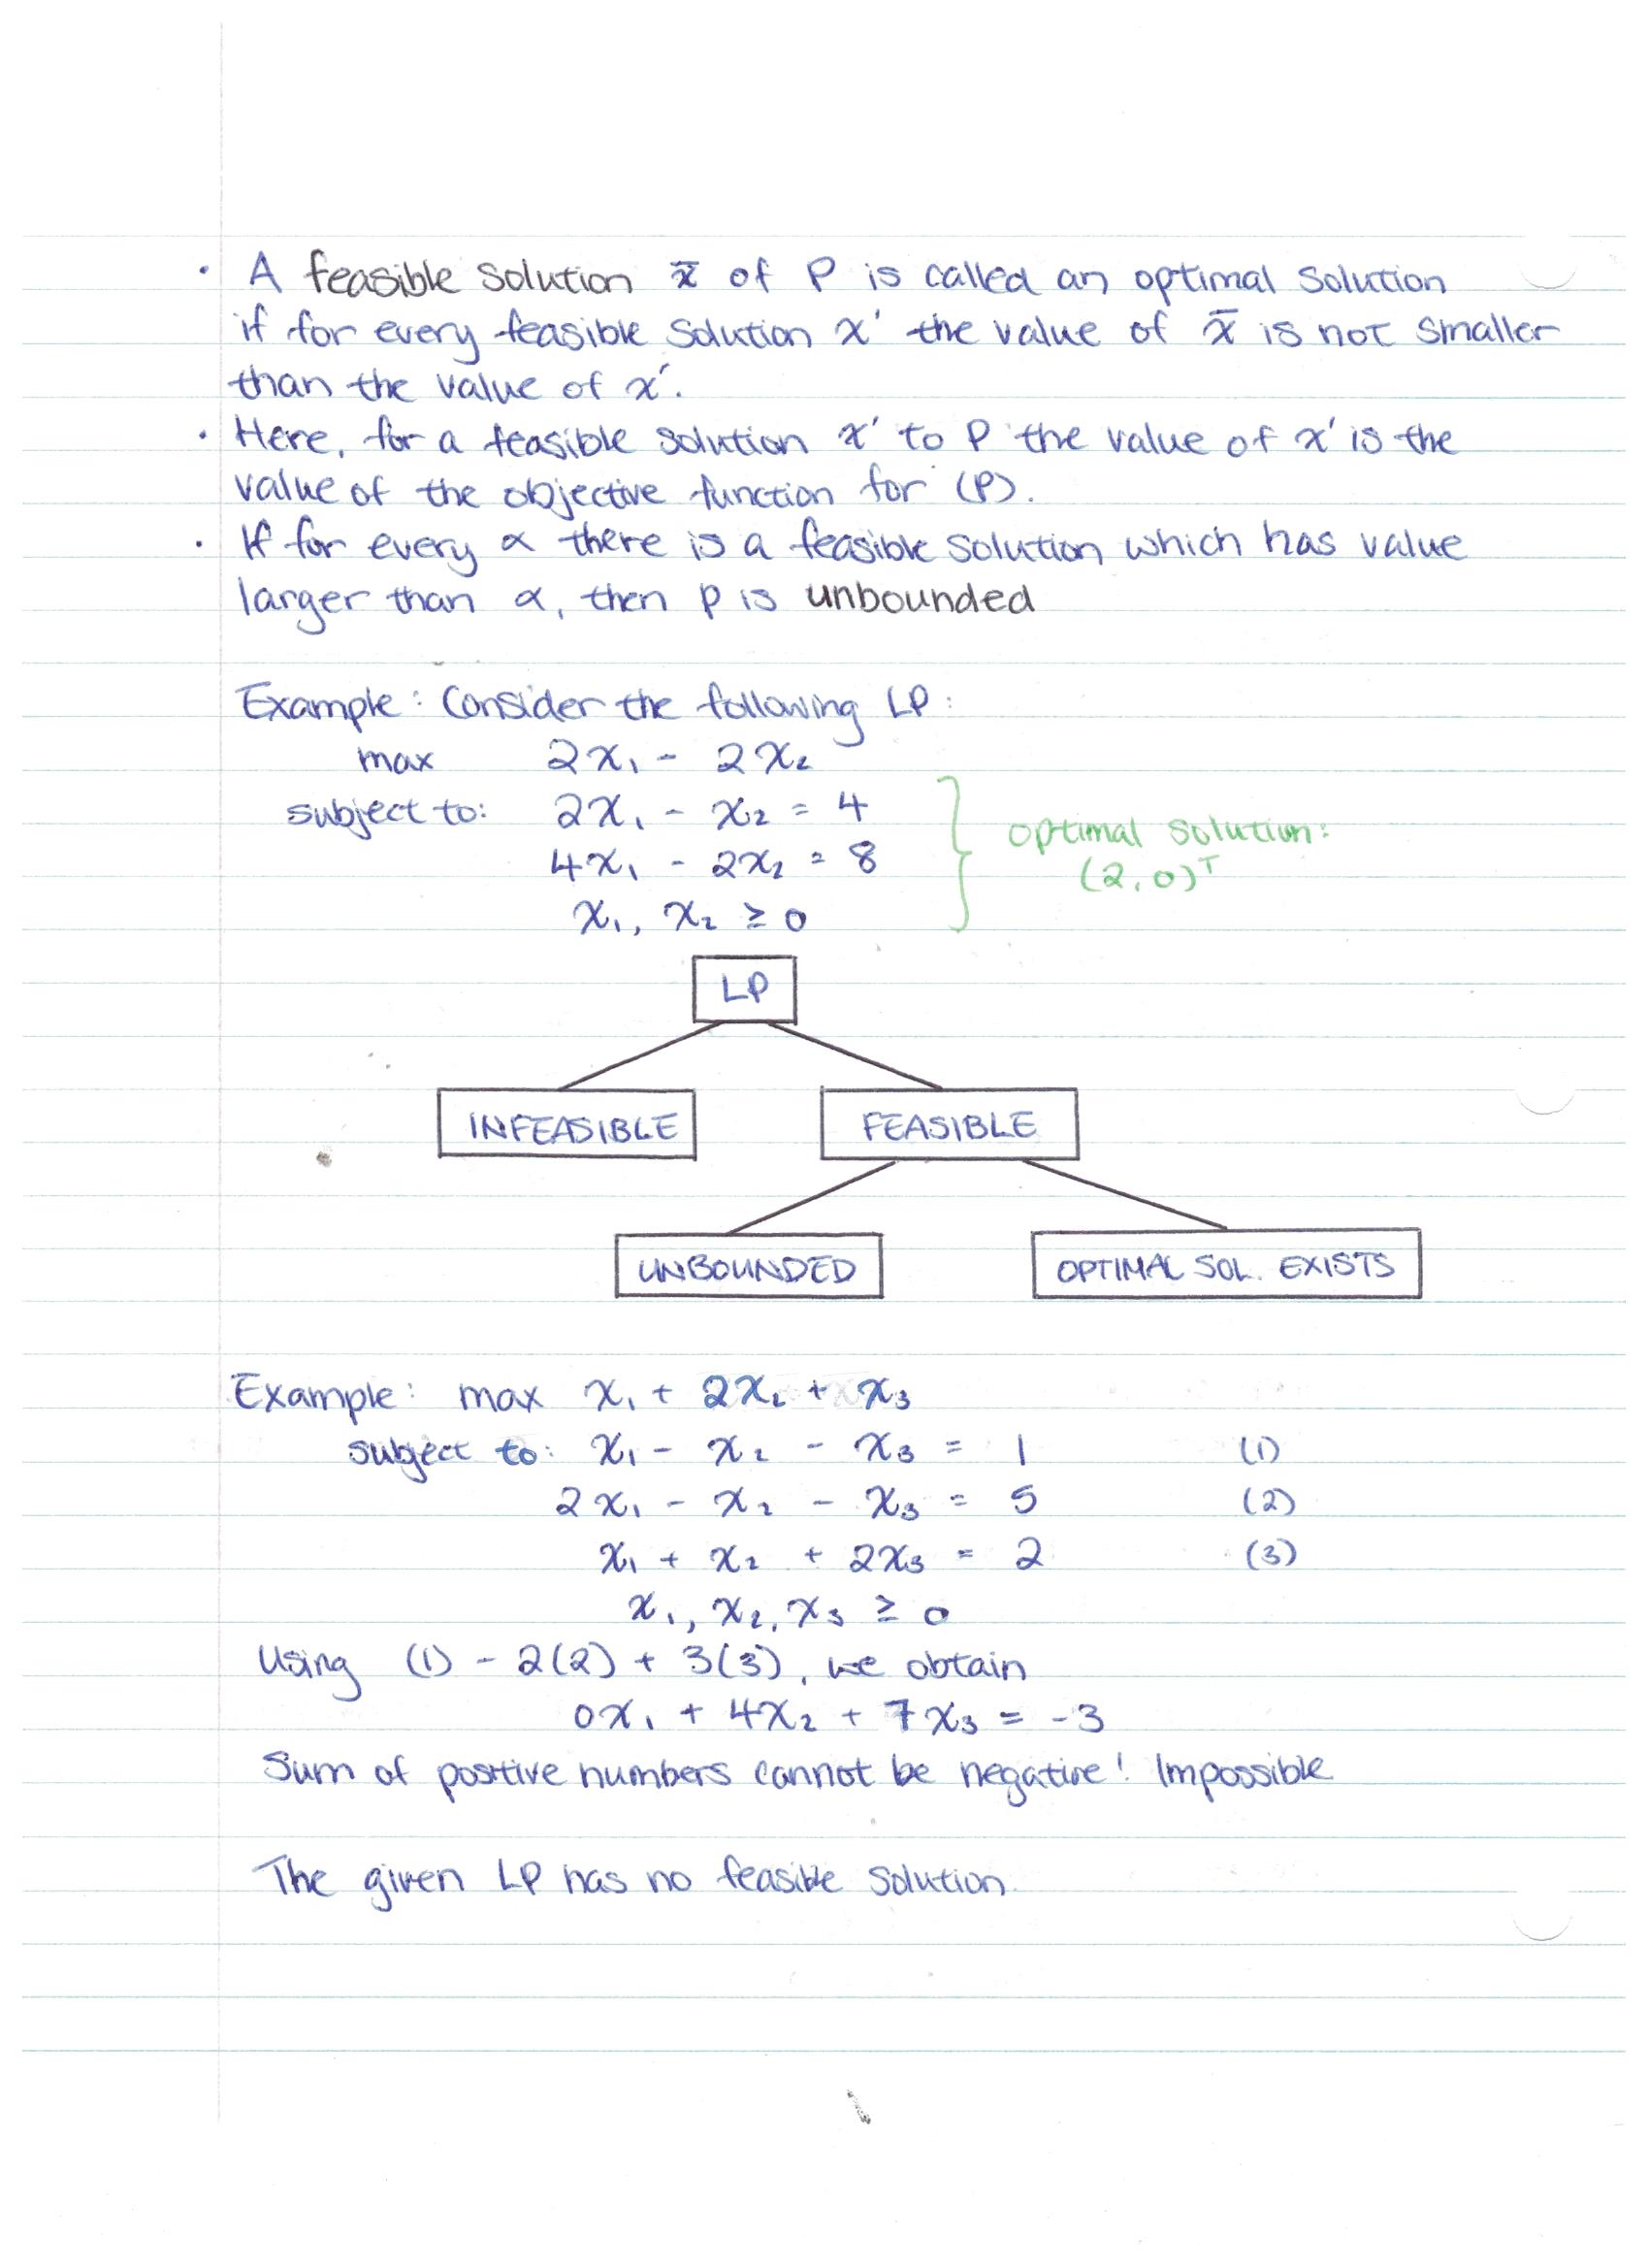 · A feasible solution x̄ of P is called an optimal solution
if for every feasible solution x' the value of x̄ is not smaller
than the value of x'.
· Here, for a feasible solution x' to P the value of x' is the
value of the objective function for (P).
· If for every α there is a feasible solution which has value
larger than α, then P is unbounded
Example: Consider the following LP:
max 2x₁ - 2x₂
subject to: 2x₁ - x₂ = 4
4x₁ - 2x₂ = 8
x₁, x₂ ≥ 0
optimal solution:
(2,0)ᵀ
LP
INFEASIBLE
FEASIBLE
UNBOUNDED
OPTIMAL SOL. EXISTS
Example: max x₁ + 2x₂ + x₃
subject to: x₁ - x₂ - x₃ = 1 (1)
2x₁ - x₂ - x₃ = 5 (2)
x₁ + x₂ + 2x₃ = 2 (3)
x₁, x₂, x₃ ≥ 0
Using (1) - 2(2) + 3(3), we obtain
0x₁ + 4x₂ + 7x₃ = -3
Sum of positive numbers cannot be negative! Impossible
The given LP has no feasible solution.